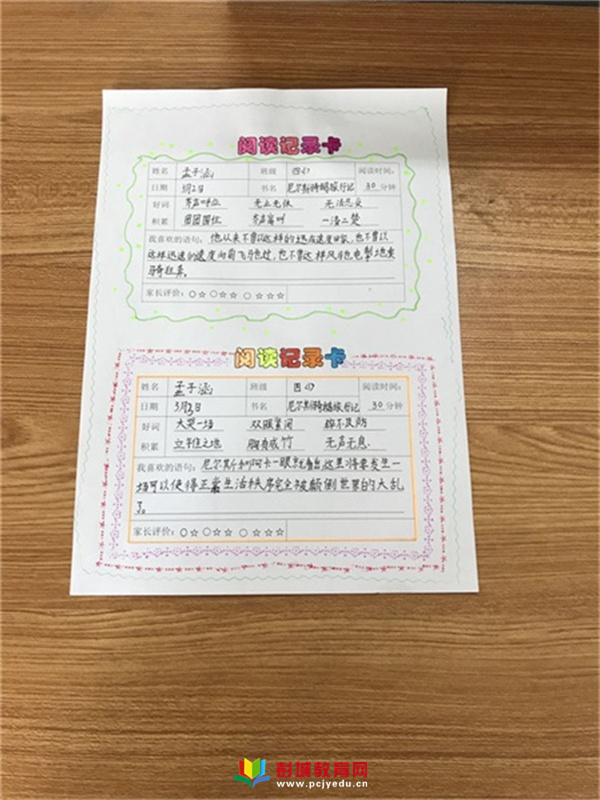 阅读记录卡
姓名 孟子涵 班级 四(7) 阅读时间:
日期 3月2日 书名 尼尔斯骑鹅旅行记 30分钟
好词 齐声呼应 无止无休 无法忍受
积累 团团围住 齐声高叫 一清二楚
我喜欢的语句: 他从来不曾以这样的迅疾速度,也不曾以
这样迅速的速度向前飞驰过,也不曾这样风驰电掣地乘
骑狂奔。
家长评价: ○☆ ○☆☆ ○☆☆☆
阅读记录卡
姓名 孟子涵 班级 四(7) 阅读时间:
日期 3月3日 书名 尼尔斯骑鹅旅行记 30分钟
好词 大哭一场 双眼紧闭 猝不及防
积累 立于佳之地 胸有成竹 无声无息
我喜欢的语句: 尼尔斯和阿卡一眼就看出这里将要发生一
场可以使得正常生活秩序完全被颠倒世界的大乱
了。
家长评价: ○☆ ○☆☆ ○☆☆☆
彭城教育网
www.pcjyedu.cn